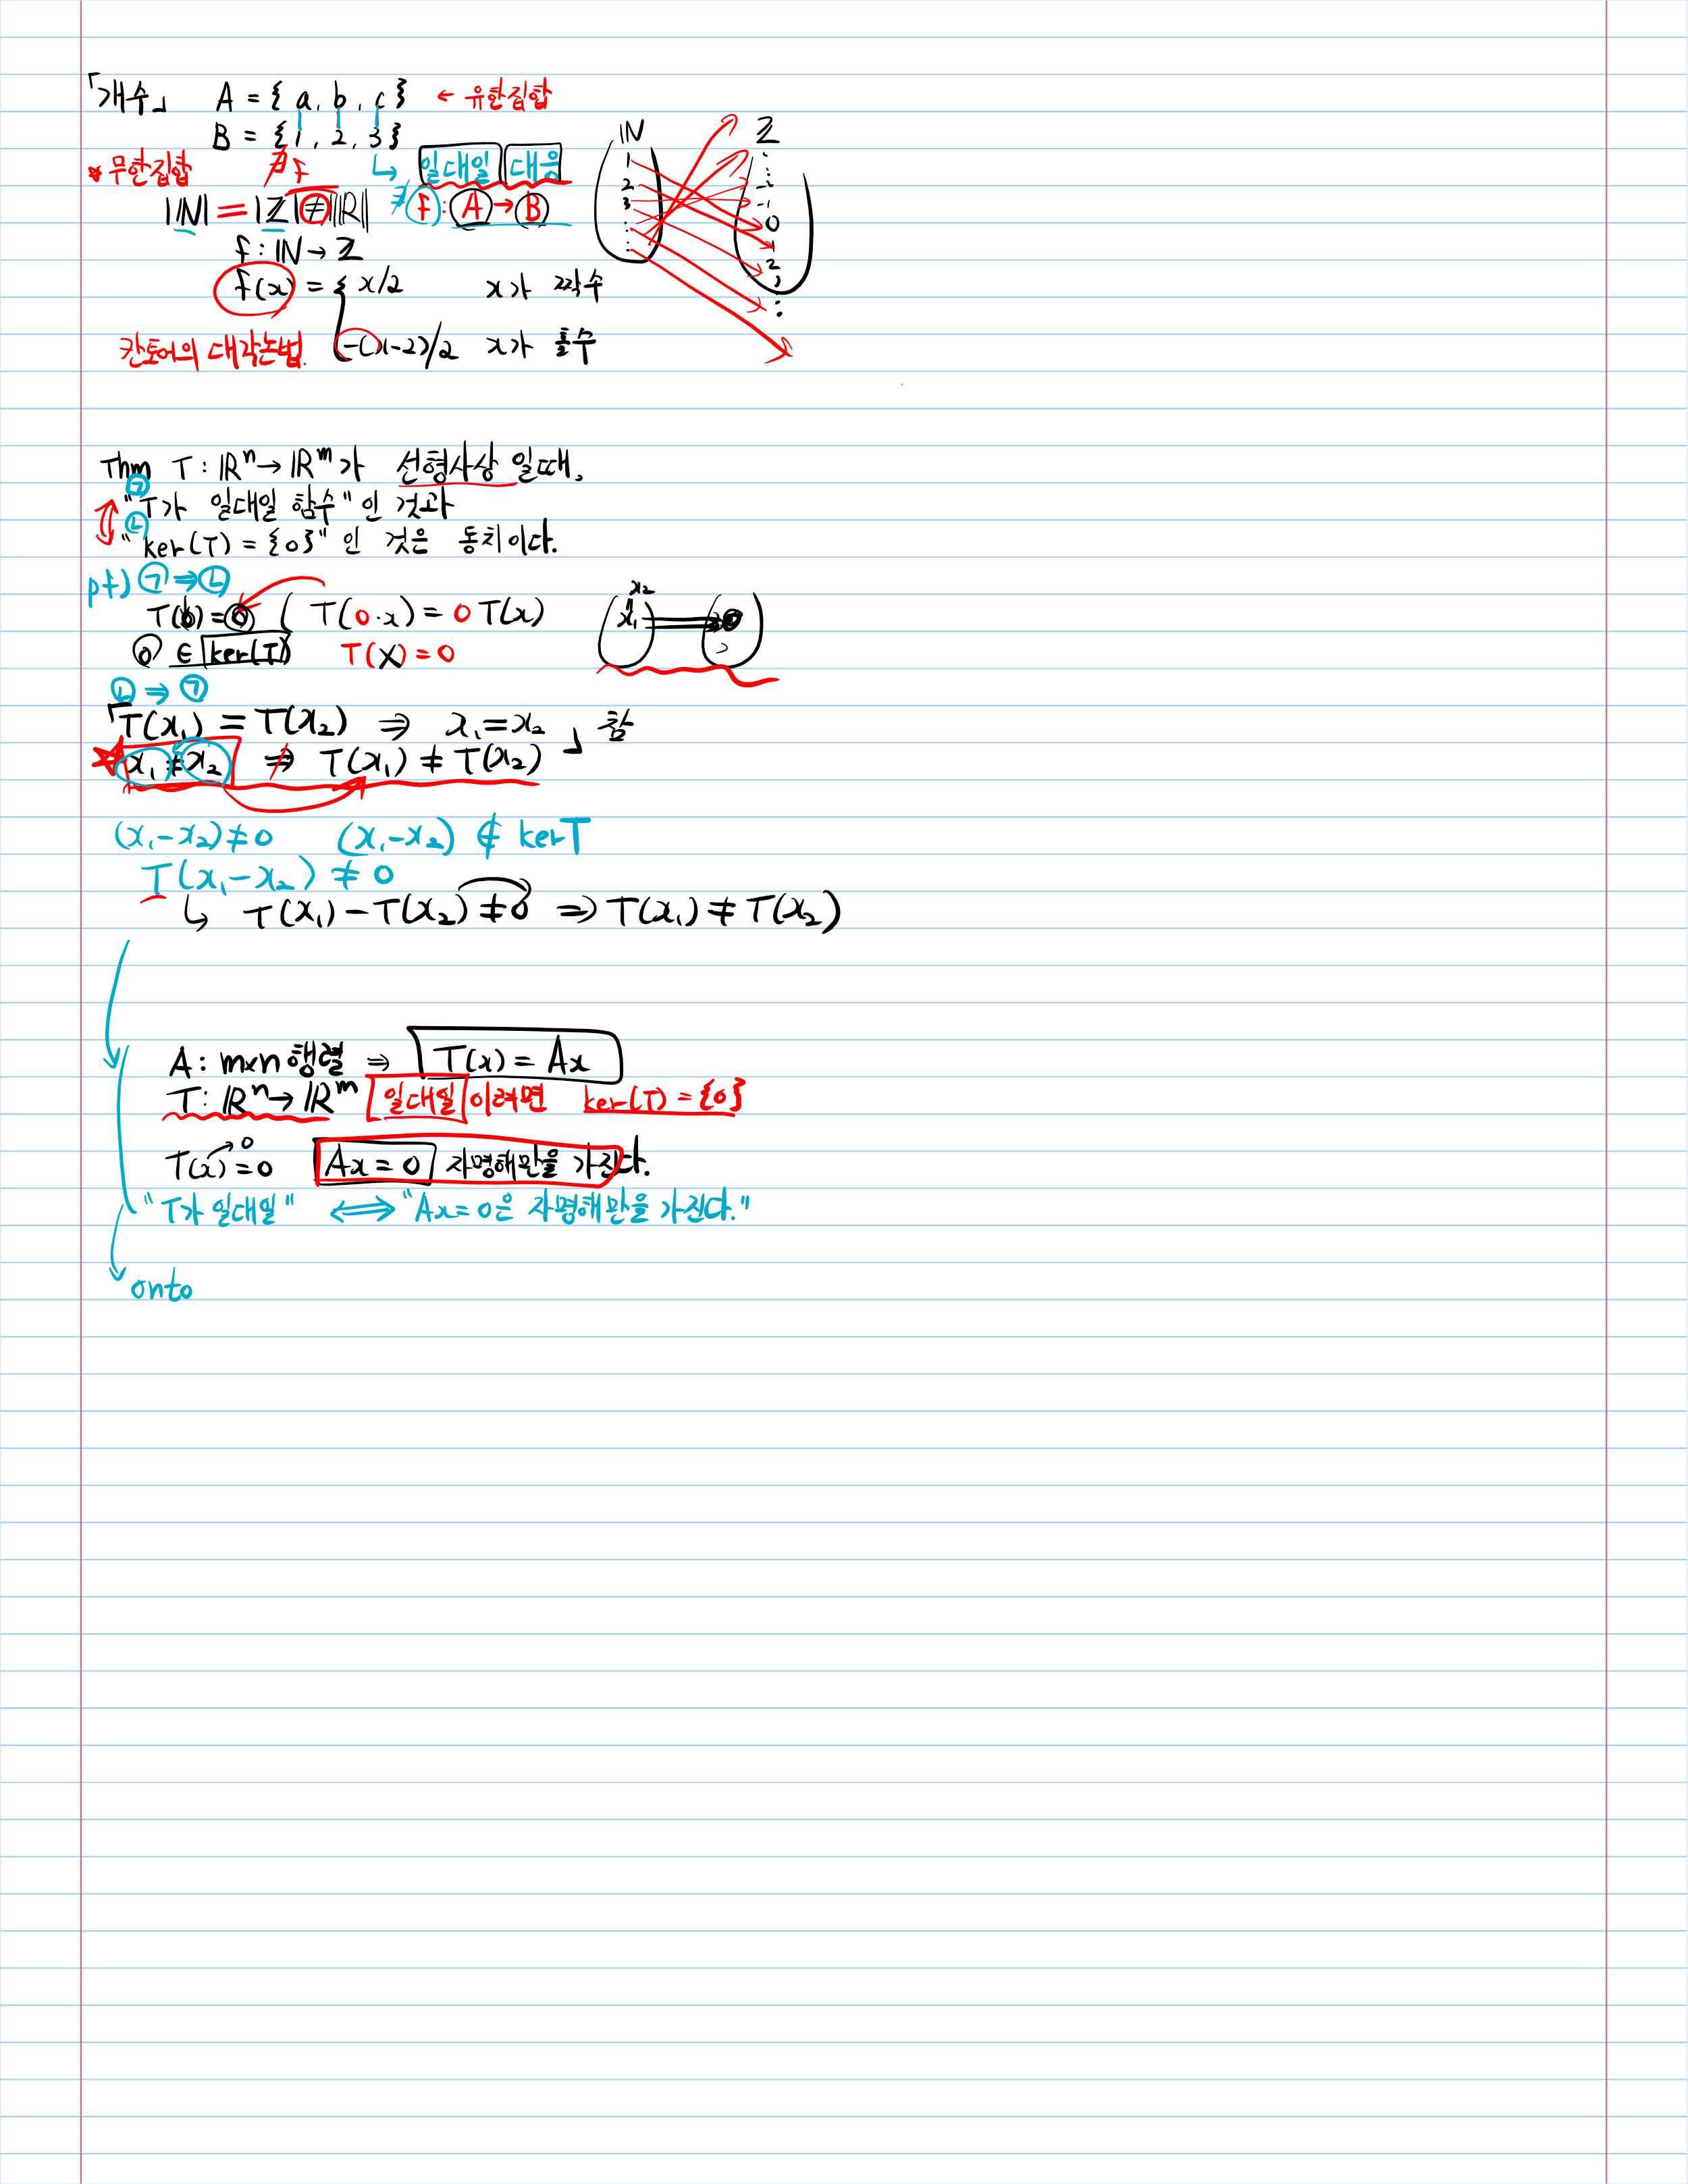 「개수」 A = { a, b, c } ← 유한집합
B = { 1, 2, 3 }
* 무한집합 ∄ f ↳ 일대일 대응
|ℕ| = |ℤ| ≠ |ℝ| f : A → B
f : ℕ → ℤ
f(x) = { x/2 x가 짝수
칸토어의 대각논법. -( -2)/2 x가 홀수
ℕ ℤ
1 :
2 -2
3 -1
: 0
: 1
2
:
Thm T : ℝⁿ → ℝᵐ가 선형사상 일때,
㉠ "T가 일대일 함수"인 것과
㉡ "ker(T) = {0}"인 것은 동치이다.
pf) ㉠ ⇒ ㉡
T(0) = 0 ( T(0·x) = 0 T(x) x₁ x₂ 0
0 ∈ ker(T) T(x) = 0
㉡ ⇒ ㉠
「T(x₁) = T(x₂) ⇒ x₁ = x₂
x₁ ≠ x₂ ⇒ T(x₁) ≠ T(x₂) 」 참
(x₁-x₂) ≠ 0 (x₁-x₂) ∉ kerT
T(x₁-x₂) ≠ 0
↳ T(x₁) - T(x₂) ≠ 0 ⇒ T(x₁) ≠ T(x₂)
A : m×n 행렬 ⇒ T(x) = Ax
T : ℝⁿ → ℝᵐ 일대일 이려면 ker(T) = {0}
T(x) = 0 Ax = 0 자명해만을 가진다.
"T가 일대일" ⟺ "Ax = 0은 자명해만을 가진다."
onto